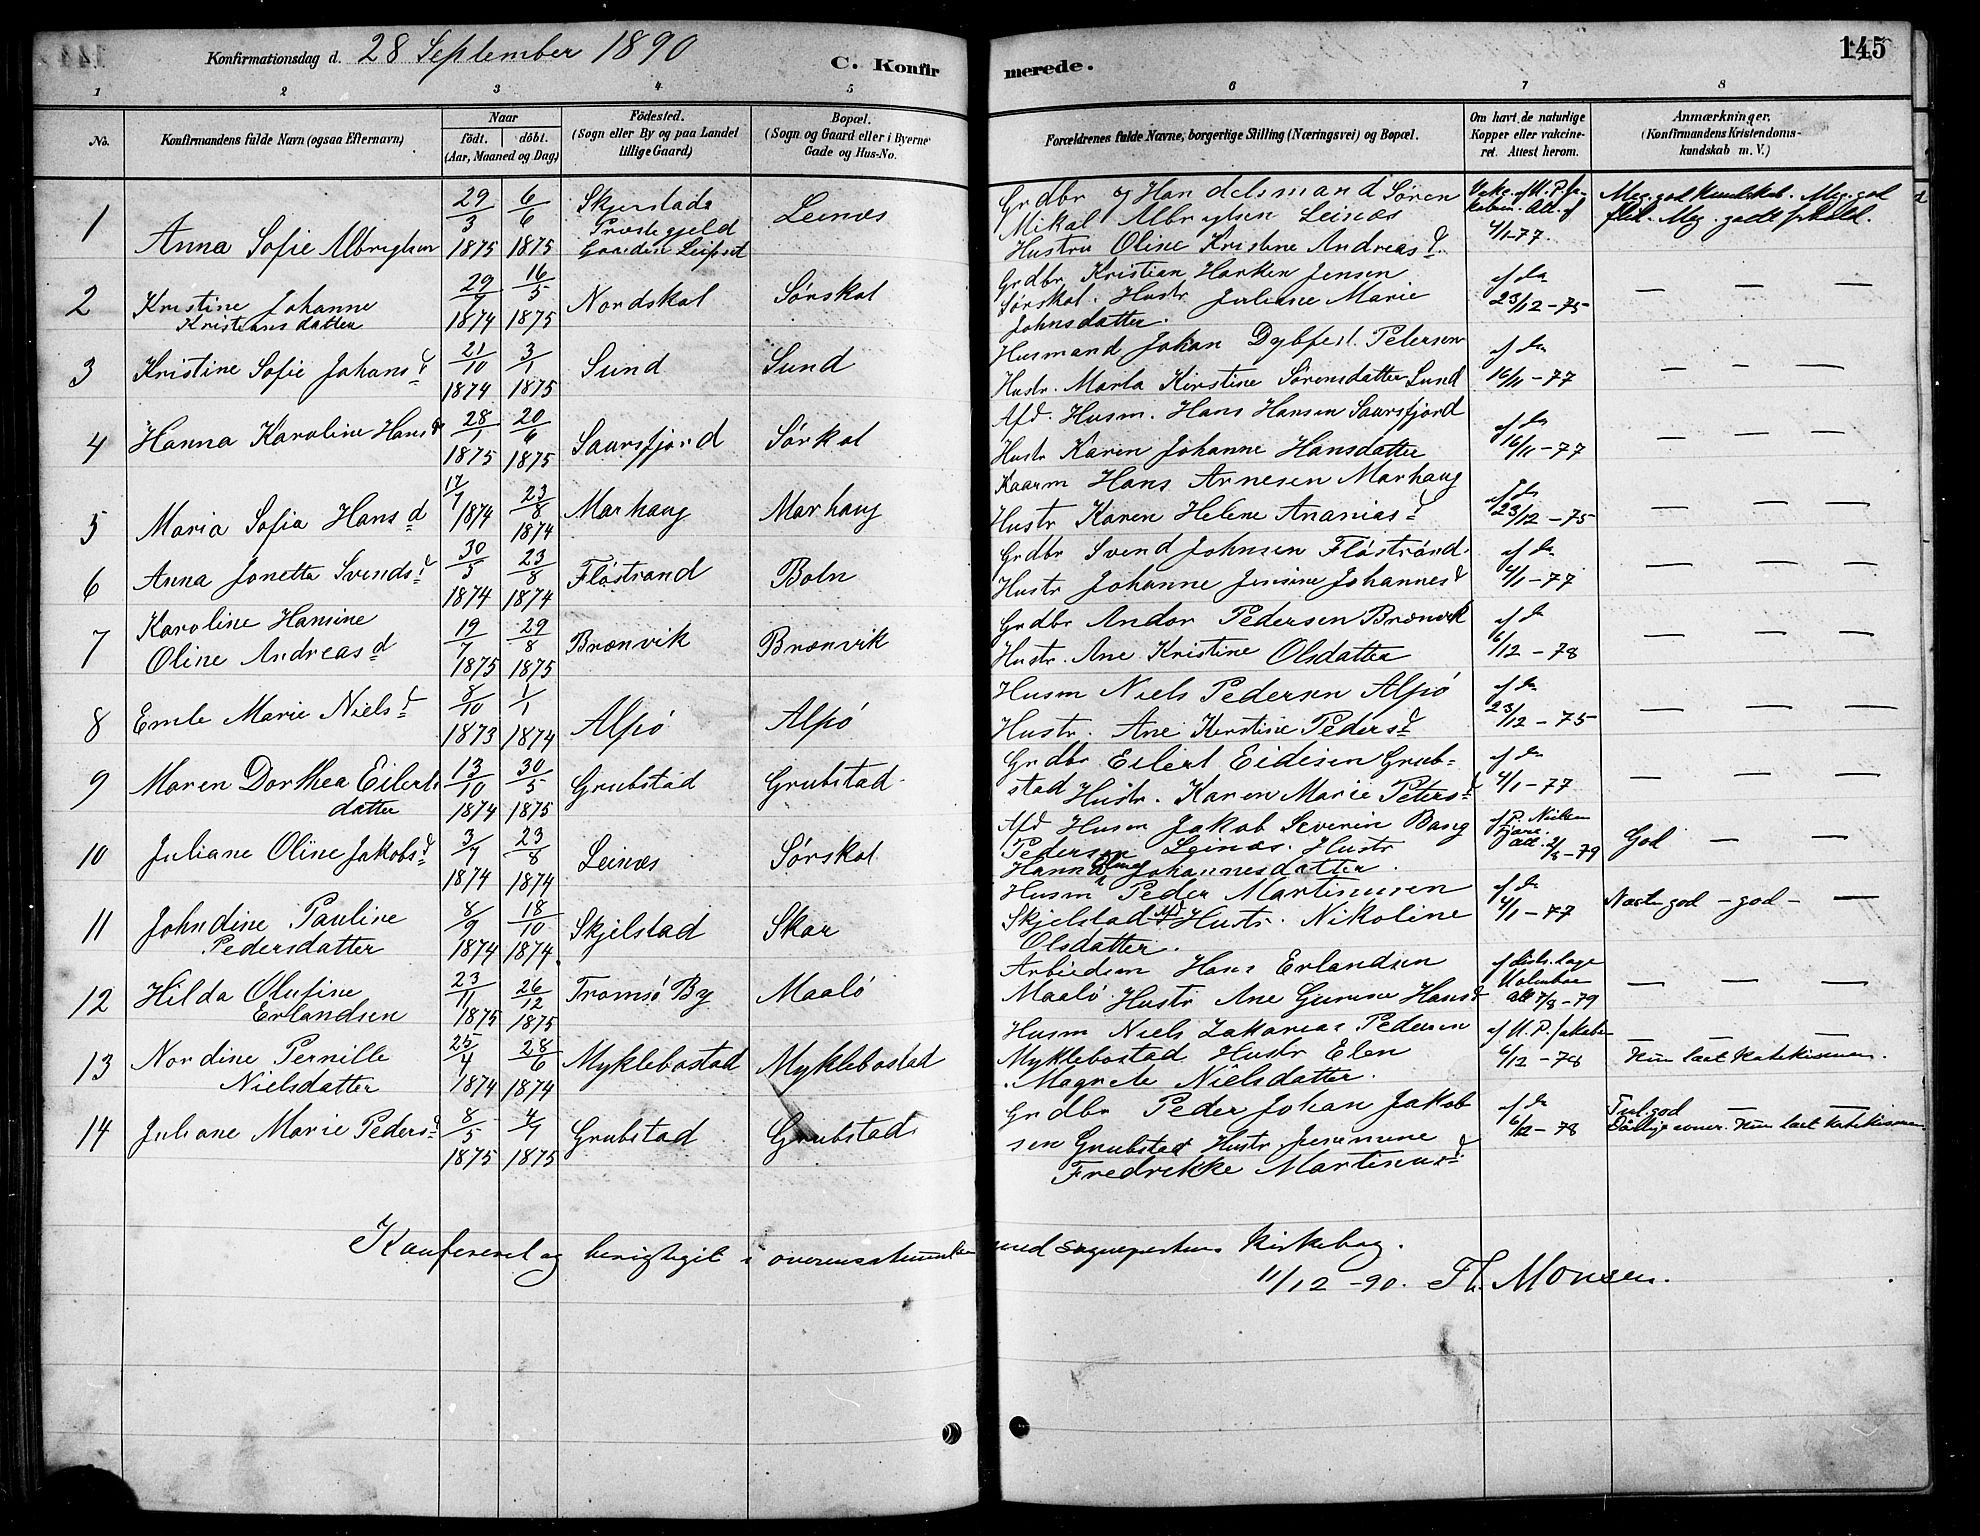 Konfirmationsdag d. 28 September 1890
C. Konfirmerede.
145
1 2 3 4 5 6 7 8
No.
Konfirmandens fulde Navn (ogsaa Efternavn)
Naar
födt. döbt.
(Aar, Maaned og Dag)
Födested.
(Sogn eller By og paa Landet
tillige Gaard)
Bopæl.
(Sogn og Gaard eller i Byerne
Gade og Hus-No.
Forældrenes fulde Navne, borgerlige Stilling (Næringsvei) og Bopæl.
Om havt de naturlige
Kopper eller vakcineret.
Attest herom.
Anmærkninger.
(Konfirmandens Kristendomskundskab
m. V.)
1 Anna Sofie Albrigtsen 29/3 1875 6/6 1875 Skjerstads Præstegjeld Gaarden Leinæs
Grdbr og Handelsmand Sören
Mikal Albrigtsen Leinæs
Hustru Oline Kristine Andreasd
4/1-77. Meg. god Kundskab. Meg. god
flid. Meg. godt forhold.
2 Kristine Johanne
Kristiansdatter 29/7 1874 16/5 1875 Nordskot Sörskot
Grdbr Kristian Harken Jensen
Sörskot. Hustr Juliane Marie
Johnsdatter.
af da 23/12-75 — — —
3 Kristine Sofie Johansd 21/10 1874 3/1 1875 Sund Sund
Husmand Johan Dybfest Petersen
Hustr. Marta Kirstine Sörensdatter Sund
af da 16/11-77 — — —
4 Hanna Karoline Hansd 28/1 1875 20/6 1875 Saursfjord Sörkot
Afd. Husm. Hans Hansen Saursfjord
Hustr Karen Johanne Hansdatter
af da 16/11-77 — — —
5 Maria Sofia Hansd 17/7 1874 23/8 1874 Marhaug Marhaug
Kaarm Hans Arnesen Marhaug
Hustr Karen Helene Ananiasd
af da 23/12-75 — — —
6 Anna Jonetta Svendsd 30/5 1874 23/8 1874 Flöstrand Boln
Grdbr Svend Johnsen Flöstrand.
Hustr Johanne Jensine Johannesd
af da 4/1-77 — — —
7 Karoline Hansine
Oline Andreasd 19/7 1875 29/8 1875 Brænvik Brænvik
Grdbr Andor Pedersen Brænvik
Hustr. Ane Kristine Olsdatter
af d 6/12-78 — — —
8 Emle Marie Nielsd 8/10 1873 1/1 1874 Alpö Alpö
Husm Niels Pedersen Alpö
Hustr. Ane Kerstine Pedersd
af da 23/12-75 — — —
9 Maren Dorthea Eilerts
datter 13/10 1874 30/5 1875 Grubstad Grubstad
Grdbr Eilert Eidisen Grubstad
Hustr. Karen Marie Petersd
af da 4/1-77 — — —
10 Juliane Oline Jakobsd 3/7 1874 23/8 1874 Leinæs Sörskot
Afd Husm Jakob Severin Bang
Pedersen Leinæs. Hustr
Hanna Johannesdatter.
af P. Nielsen
God — —
11 Johndine Pauline
Pedersdatter 8/9 1874 18/10 1874. Skjelstad Skar
Husm Peder Martinusen
Skjelstad Afd Hustr. Nikoline
Olsdatter.
af da 4/1-77 Næsten god - god - —
12 Hilda Olufine
Erlandsen 23/11 1875 26/12 1875 Tromsö By Maalö
Arbeidsm Hans Erlandsen
Maalö. Hustr Ane Gurine Hansd
af distr. læge
Holmboe
att 7/8-79 — — —
13 Nordine Pernille
Nielsdatter 25/4 1874 28/6 1874 Myklebostad Myklebostad
Husm Niels Zakarias Pedersen
Myklebostad Hustr Elen
Magrete Nielsdatter.
af H. P. Jakobsen
6/12-78 — — —
Kun læst Katekismen.
14 Juliane Marie Pedersd 8/5 1875 4/7 1875 Grubstad Grubstad
Grdbr Peder Johan Jakobsen
Grubstad Hustr
Fredrikke Martinusd.
af da 6/12-78 Tul. god — —
Dårlige evner. Kun læst Katekismen
Konfereret og berigtiget i overensstemmelse med sognepræstens Kirkebog.
11/12-90. Th. Monsen.